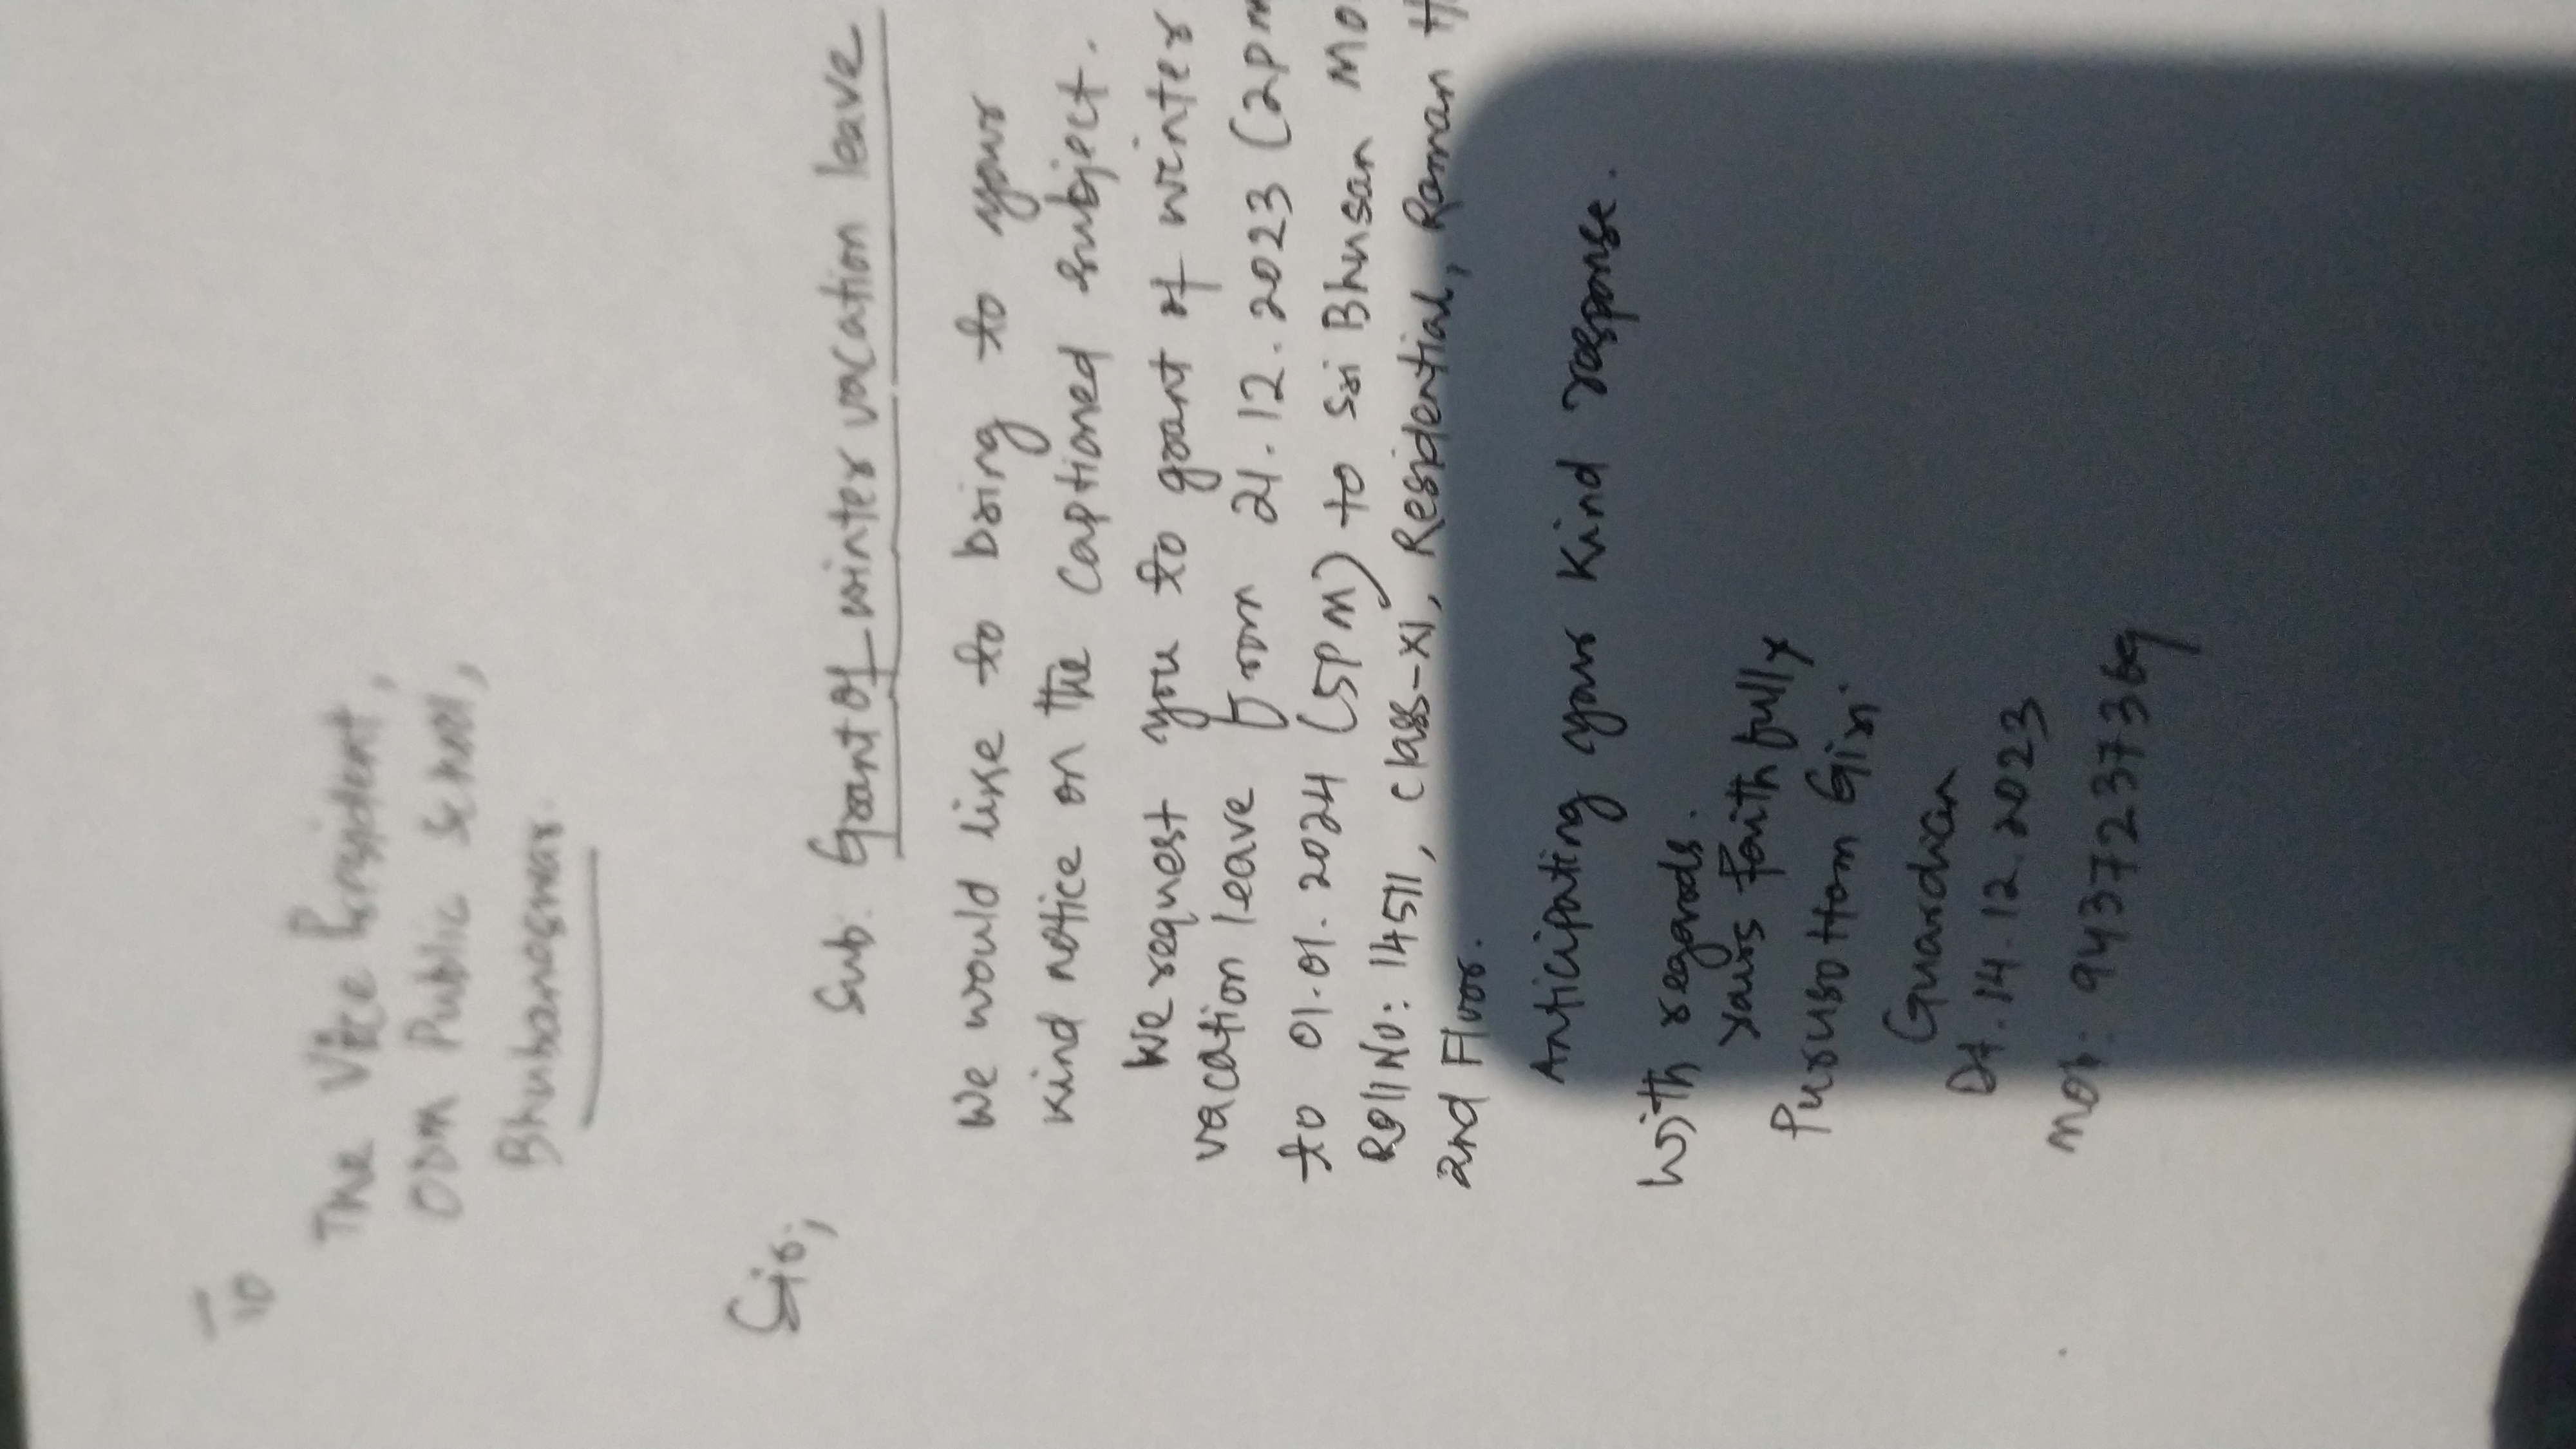 To
The Vice President,
ODM Public School,
Bhubaneswar.
Sir,
Sub: Grant of winter vacation leave
We would like to bring to your
kind notice on the captioned subject.
We request you to grant of winter
vacation leave from 21.12.2023 (2PM
to 01.01.2024 (5PM) to Sri Bhusan Mo
Roll No: 14511, class-XI, Residential, Raman H
2nd Floor.
Anticipating your kind response.
With regards.
Yours faithfully
Purusottam Giri
Guardian
Dt. 14.12.2023
Mob: 9437237369